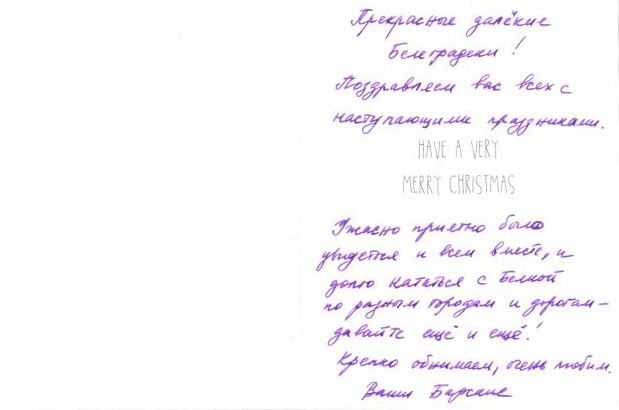 Прекрасные далёкие
Белеградски!
Поздравляем вас всех с
наступающими праздниками.
HAVE A VERY
MERRY CHRISTMAS
Ужасно приятно было
увидеться и всем вместе, и
долго кататься с Белкой
по разным городам и дорогам –
давайте ещё и ещё!
Крепко обнимаем, очень любим.
Ваши Барские